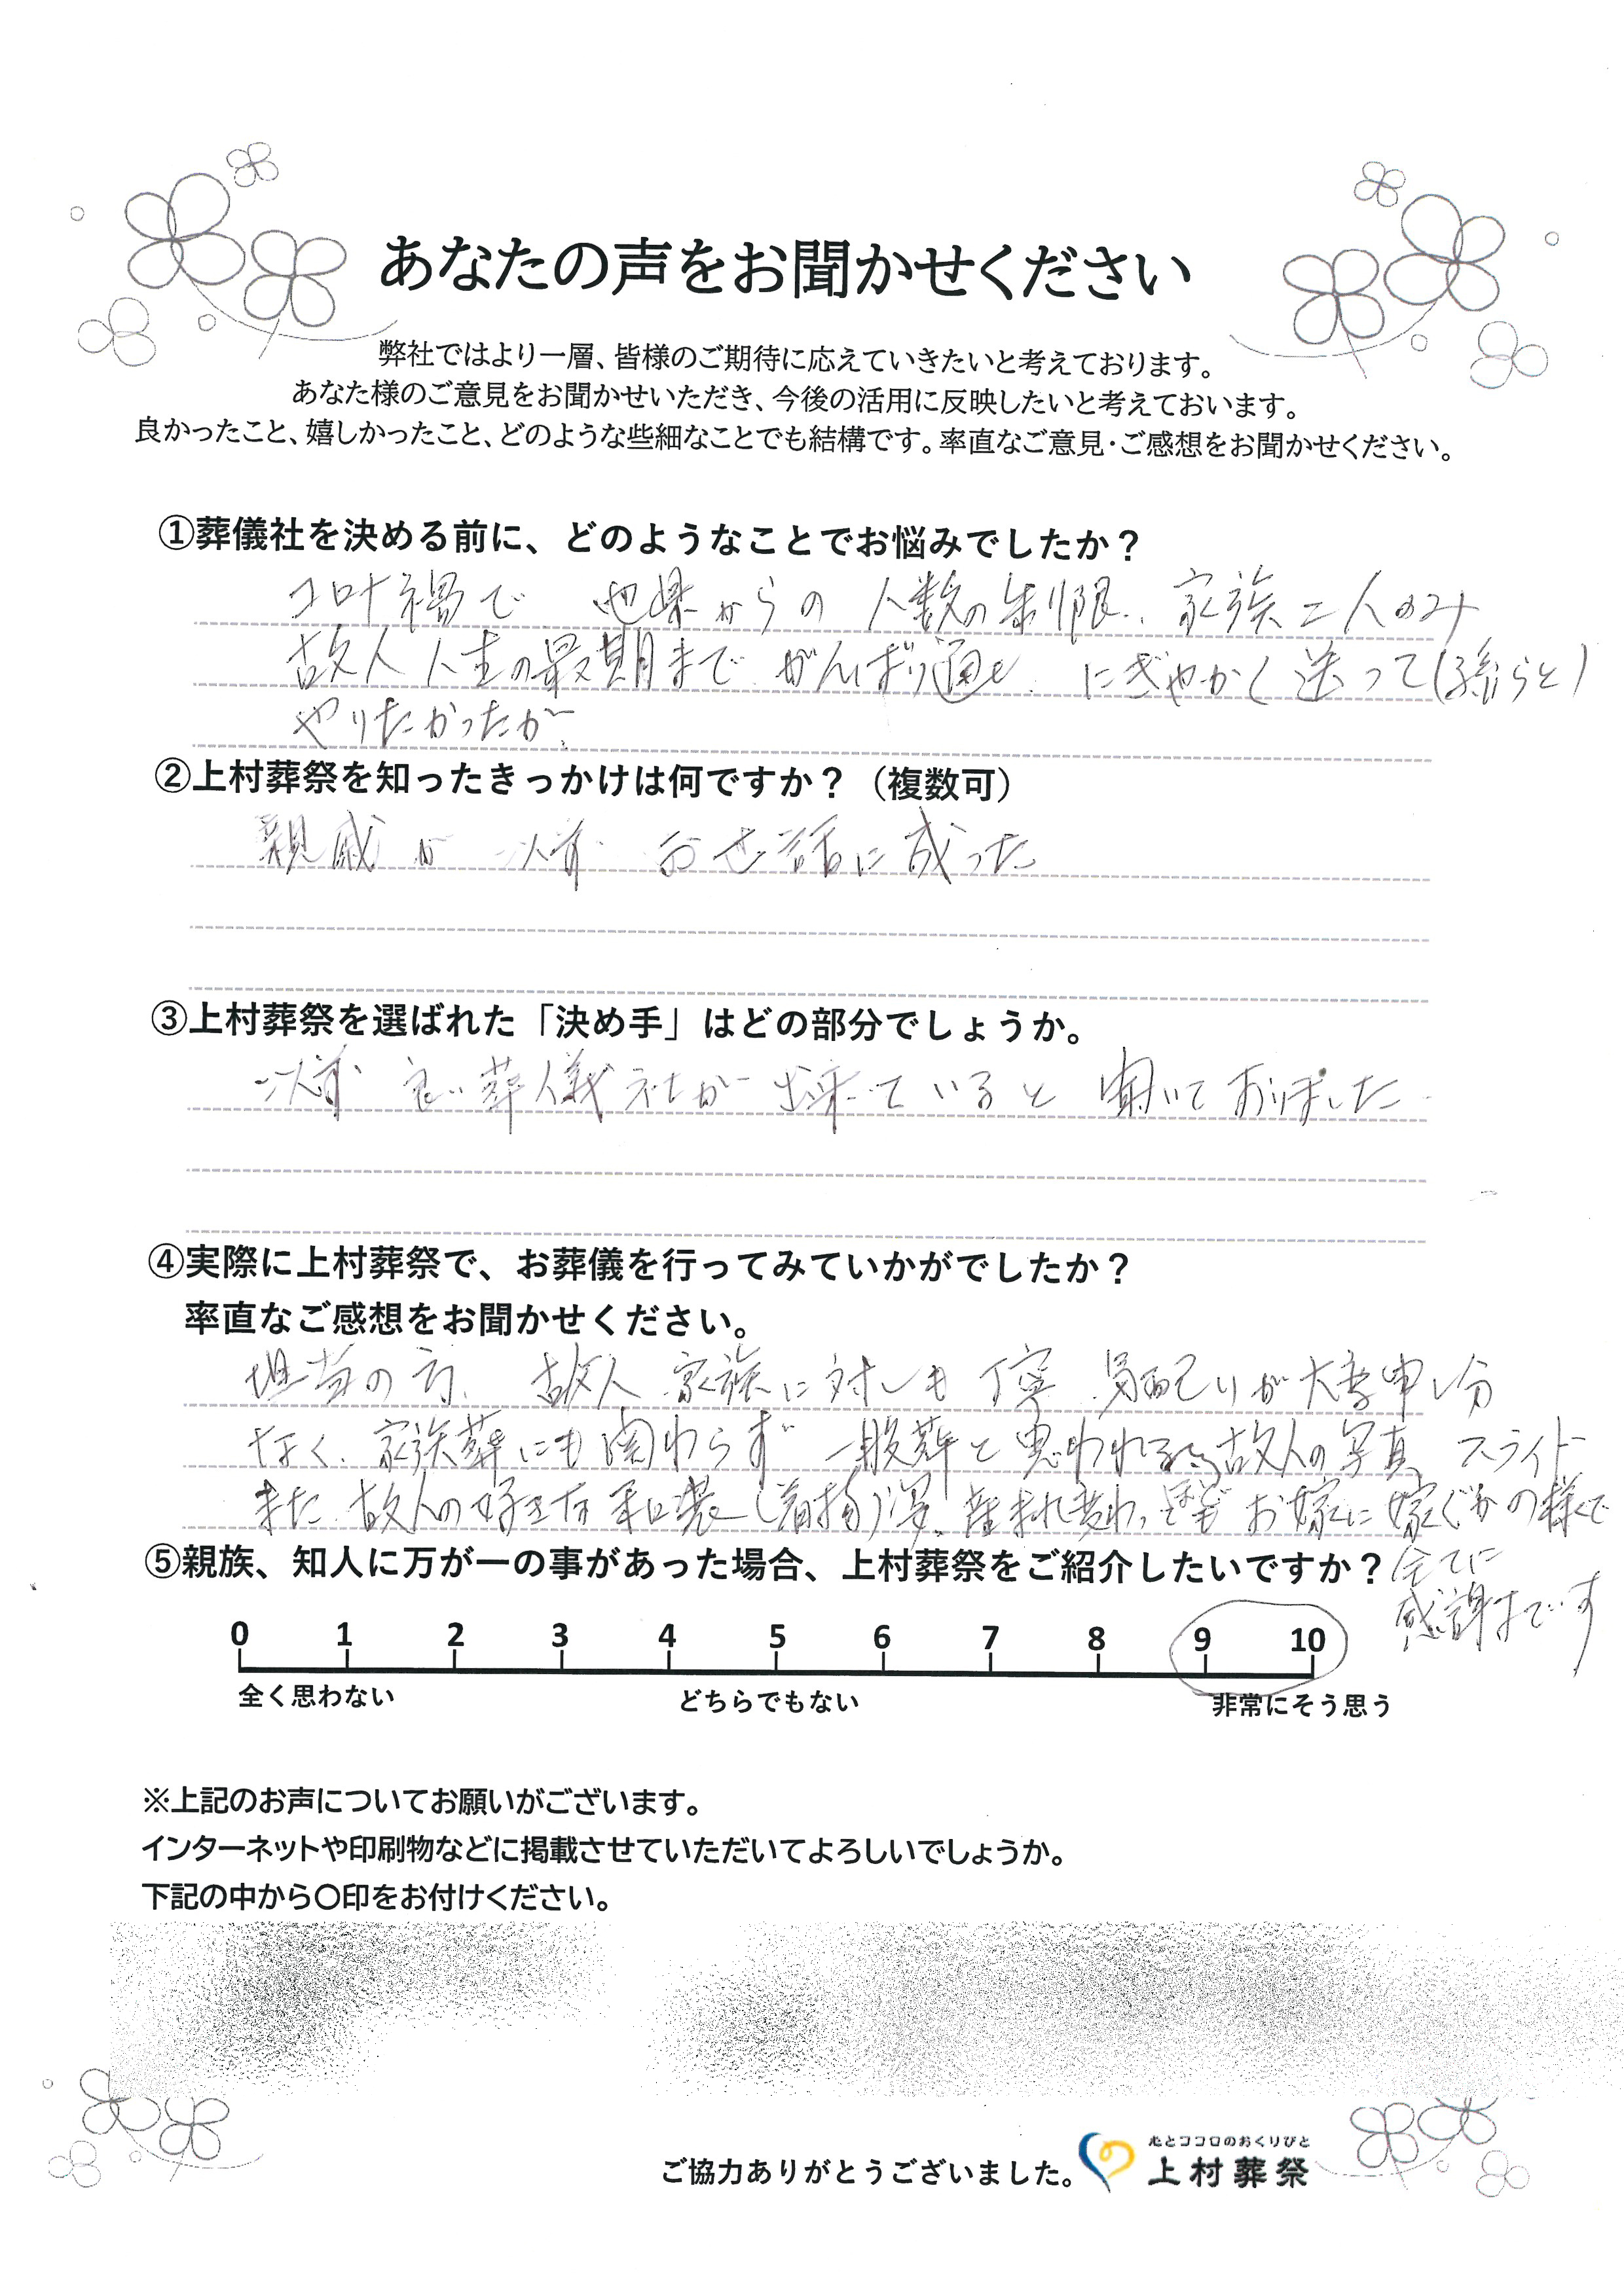 あなたの声をお聞かせください
弊社ではより一層、皆様のご期待に応えていきたいと考えております。
あなた様のご意見をお聞かせいただき、今後の活用に反映したいと考えておいます。
良かったこと、嬉しかったこと、どのような些細なことでも結構です。率直なご意見・ご感想をお聞かせください。
①葬儀社を決める前に、どのようなことでお悩みでしたか？
コロナ禍で 他県からの人数の制限. 家族二人のみ
故人 人生の最期まで がんばり通し にぎやかく送って(孫らと)
やりたかったが
②上村葬祭を知ったきっかけは何ですか？（複数可）
親戚が 以前 お世話に成った
③上村葬祭を選ばれた「決め手」はどの部分でしょうか。
以前 良い葬儀社が出来ていると聞いておりました
④実際に上村葬祭で、お葬儀を行ってみていかがでしたか？
率直なご感想をお聞かせください。
担当の方. 故人 家族に対しも丁寧 気配りが大変申し分
なく. 家族葬にも関わらず 一般葬と思われる 故人の写真 スライド
また 故人の好きな和装(着物)姿. 産まれ変わって お嫁に嫁ぐかの様で
全てに
感謝までです
⑤親族、知人に万が一の事があった場合、上村葬祭をご紹介したいですか？
0 1 2 3 4 5 6 7 8 9 10
全く思わない どちらでもない 非常にそう思う
※上記のお声についてお願いがございます。
インターネットや印刷物などに掲載させていただいてよろしいでしょうか。
下記の中から〇印をお付けください。
ご協力ありがとうございました。
心とココロのおくりびと
上村葬祭